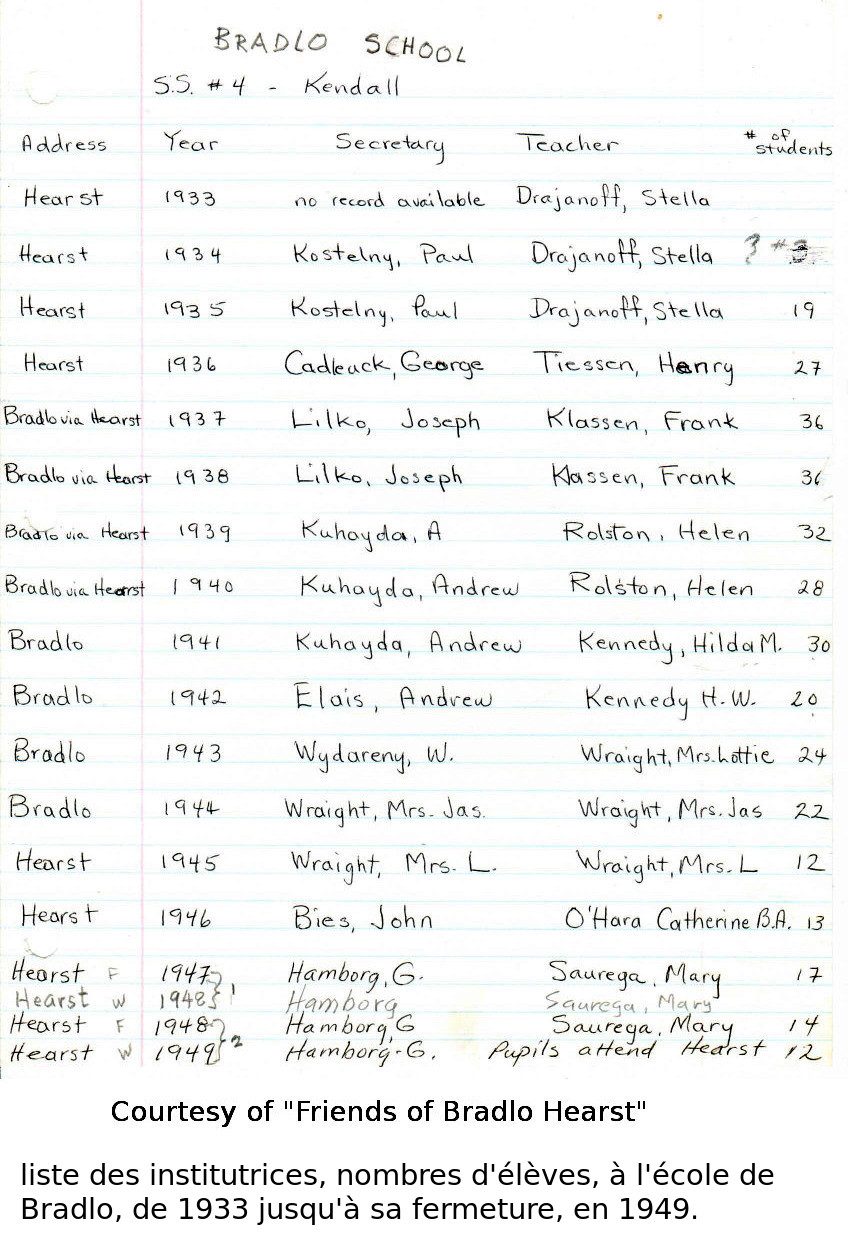 BRADLO SCHOOL
S.S. # 4 - Kendall
Address Year Secretary Teacher # of students
Hearst 1933 no record available Drajanoff, Stella
Hearst 1934 Kostelny, Paul Drajanoff, Stella ? #
Hearst 1935 Kostelny, Paul Drajanoff, Stella 19
Hearst 1936 Cadleuck, George Tiessen, Henry 27
Bradlo via Hearst 1937 Lilko, Joseph Klassen, Frank 36
Bradlo via Hearst 1938 Lilko, Joseph Klassen, Frank 36
Bradlo via Hearst 1939 Kuhayda, A Rolston, Helen 32
Bradlo via Hearst 1940 Kuhayda, Andrew Rolston, Helen 28
Bradlo 1941 Kuhayda, Andrew Kennedy, Hilda M. 30
Bradlo 1942 Elais, Andrew Kennedy H.W. 20
Bradlo 1943 Wydareny, W. Wraight, Mrs. Lottie 24
Bradlo 1944 Wraight, Mrs. Jas. Wraight, Mrs. Jas 22
Hearst 1945 Wraight, Mrs. L. Wraight, Mrs. L 12
Hearst 1946 Bies, John O'Hara Catherine B.A. 13
Hearst F 1947 Hamborg, G. Saurega, Mary 17
Hearst W 1948 } 1 Hamborg Saurega, Mary
Hearst F 1948 Hamborg, G Saurega, Mary 14
Hearst W 1949 } 2 Hamborg - G. Pupils attend Hearst 12
Courtesy of "Friends of Bradlo Hearst"
liste des institutrices, nombres d'élèves, à l'école de
Bradlo, de 1933 jusqu'à sa fermeture, en 1949.